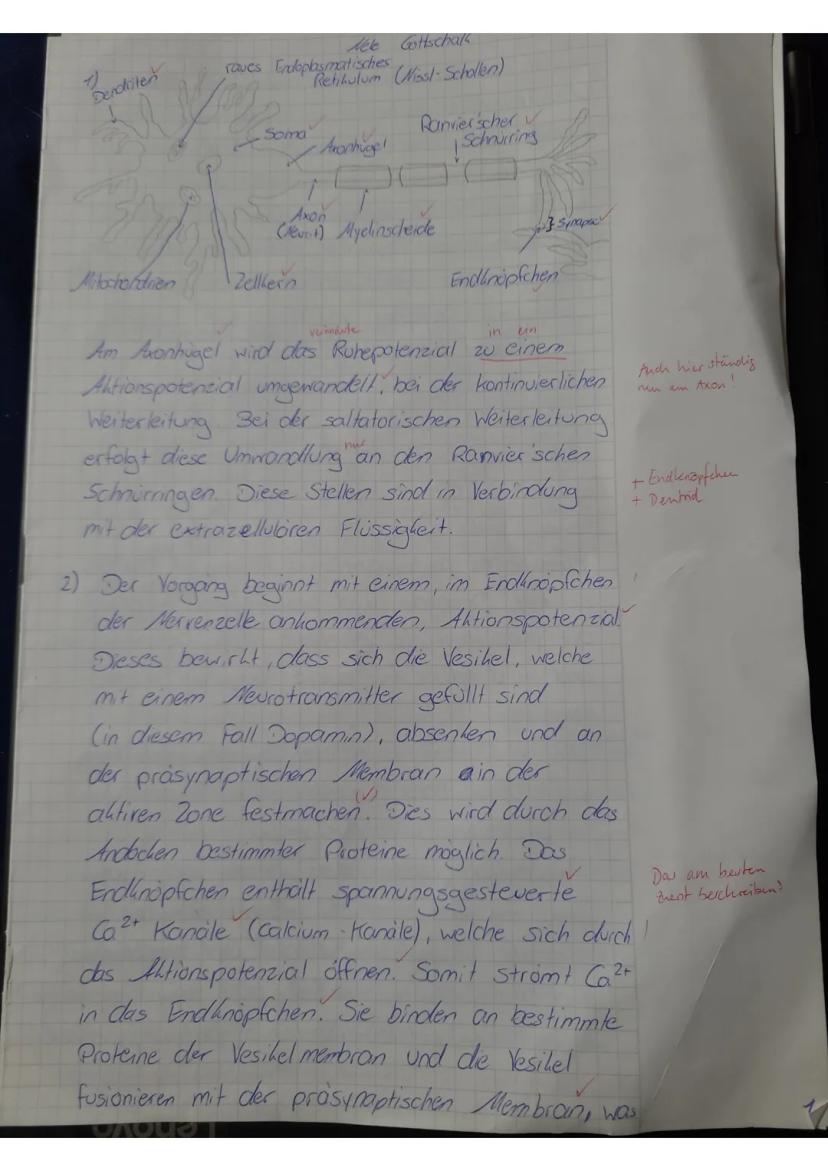 Nele Gottschalk
1)
Dendriten
raues Endoplasmatisches
Retikulum (Nissl-Schollen)
Soma
Axonhügel
Ranvier'scher
Schnürring
Axon
(Neurit)
Myelinscheide
Synapse
Mitochondrien
Zellkern
Endknöpfchen
in ein
Am Axonhügel wird das Ruhepotenzial zu einem
Aktionspotenzial umgewandelt, bei der kontinuierlichen
Weiterleitung. Bei der saltatorischen Weiterleitung
nur
erfolgt diese Umwandlung an den Ranvier'schen
Schnürringen. Diese Stellen sind in Verbindung
mit der extrazellulären Flüssigkeit.
Auch hier ständig
nur am Axon!
+ Endknöpfchen
+ Dentrid
2) Der Vorgang beginnt mit einem, im Endknöpfchen
der Nervenzelle ankommenden, Aktionspotenzial.
Dieses bewirkt, dass sich die Vesikel, welche
mit einem Neurotransmitter gefüllt sind
(in diesem Fall Dopamin), absenken und an
der präsynaptischen Membran in der
aktiven Zone festmachen. Dies wird durch das
Andocken bestimmter Proteine möglich. Das
Endknöpfchen enthält spannungsgesteuerte
Ca2+ Kanäle (Calcium-Kanäle), welche sich durch
das Aktionspotenzial öffnen. Somit strömt Ca2+
in das Endknöpfchen. Sie binden an bestimmte
Proteine der Vesikelmembran und die Vesikel
fusionieren mit der präsynaptischen Membran, was
Das am besten
zuerst beschreiben!
1
Lenovo